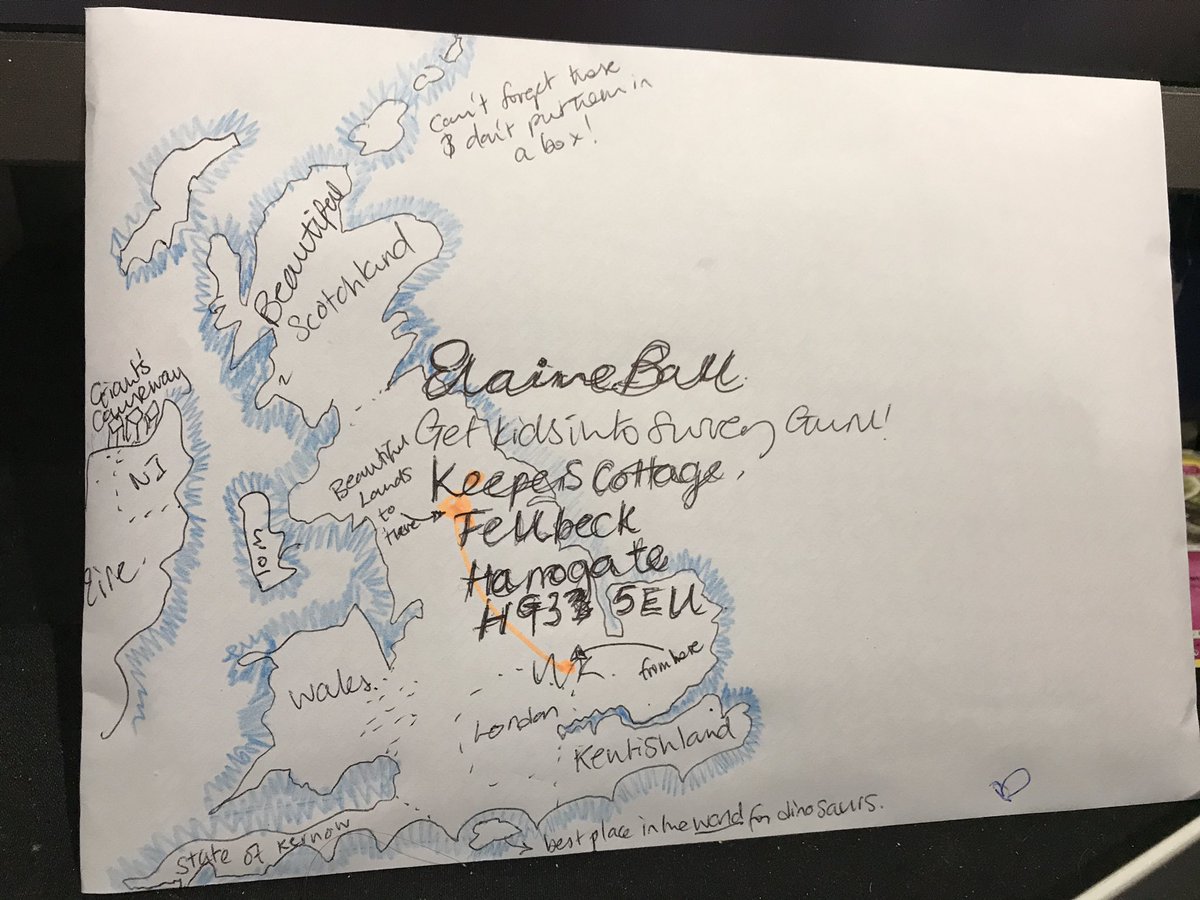 Can't forget these
& don't put them in
a box!
Beautiful
Scotchland
Giants
Causeway
NI
Eire.
IOM
Beautiful
Lands
to
here
Elaine Ball
Get kids into Survey Guru!
Keepers Cottage,
Fellbeck
Harrogate
HG3 5EU
U.K.
from here
Wales.
London
Kentishland
State of Kernow
best place in the world for dinosaurs.